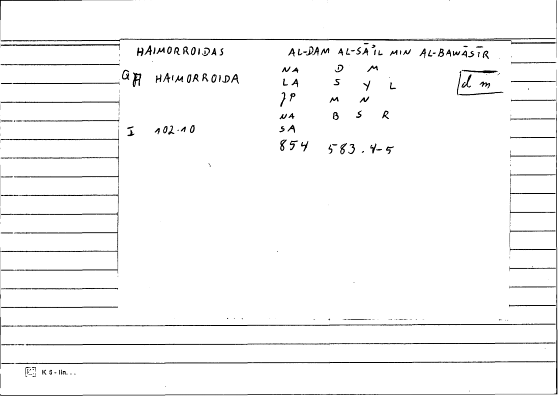 HAIMORROIDAS AL-DAM AL-SĀʾIL MIN AL-BAWĀSĪR
HAIMORROIDA NA D M
LA S Y L d m
JP M N
NA B S R
I 102.10 SA
854 583.4-5
K 6 - lin...